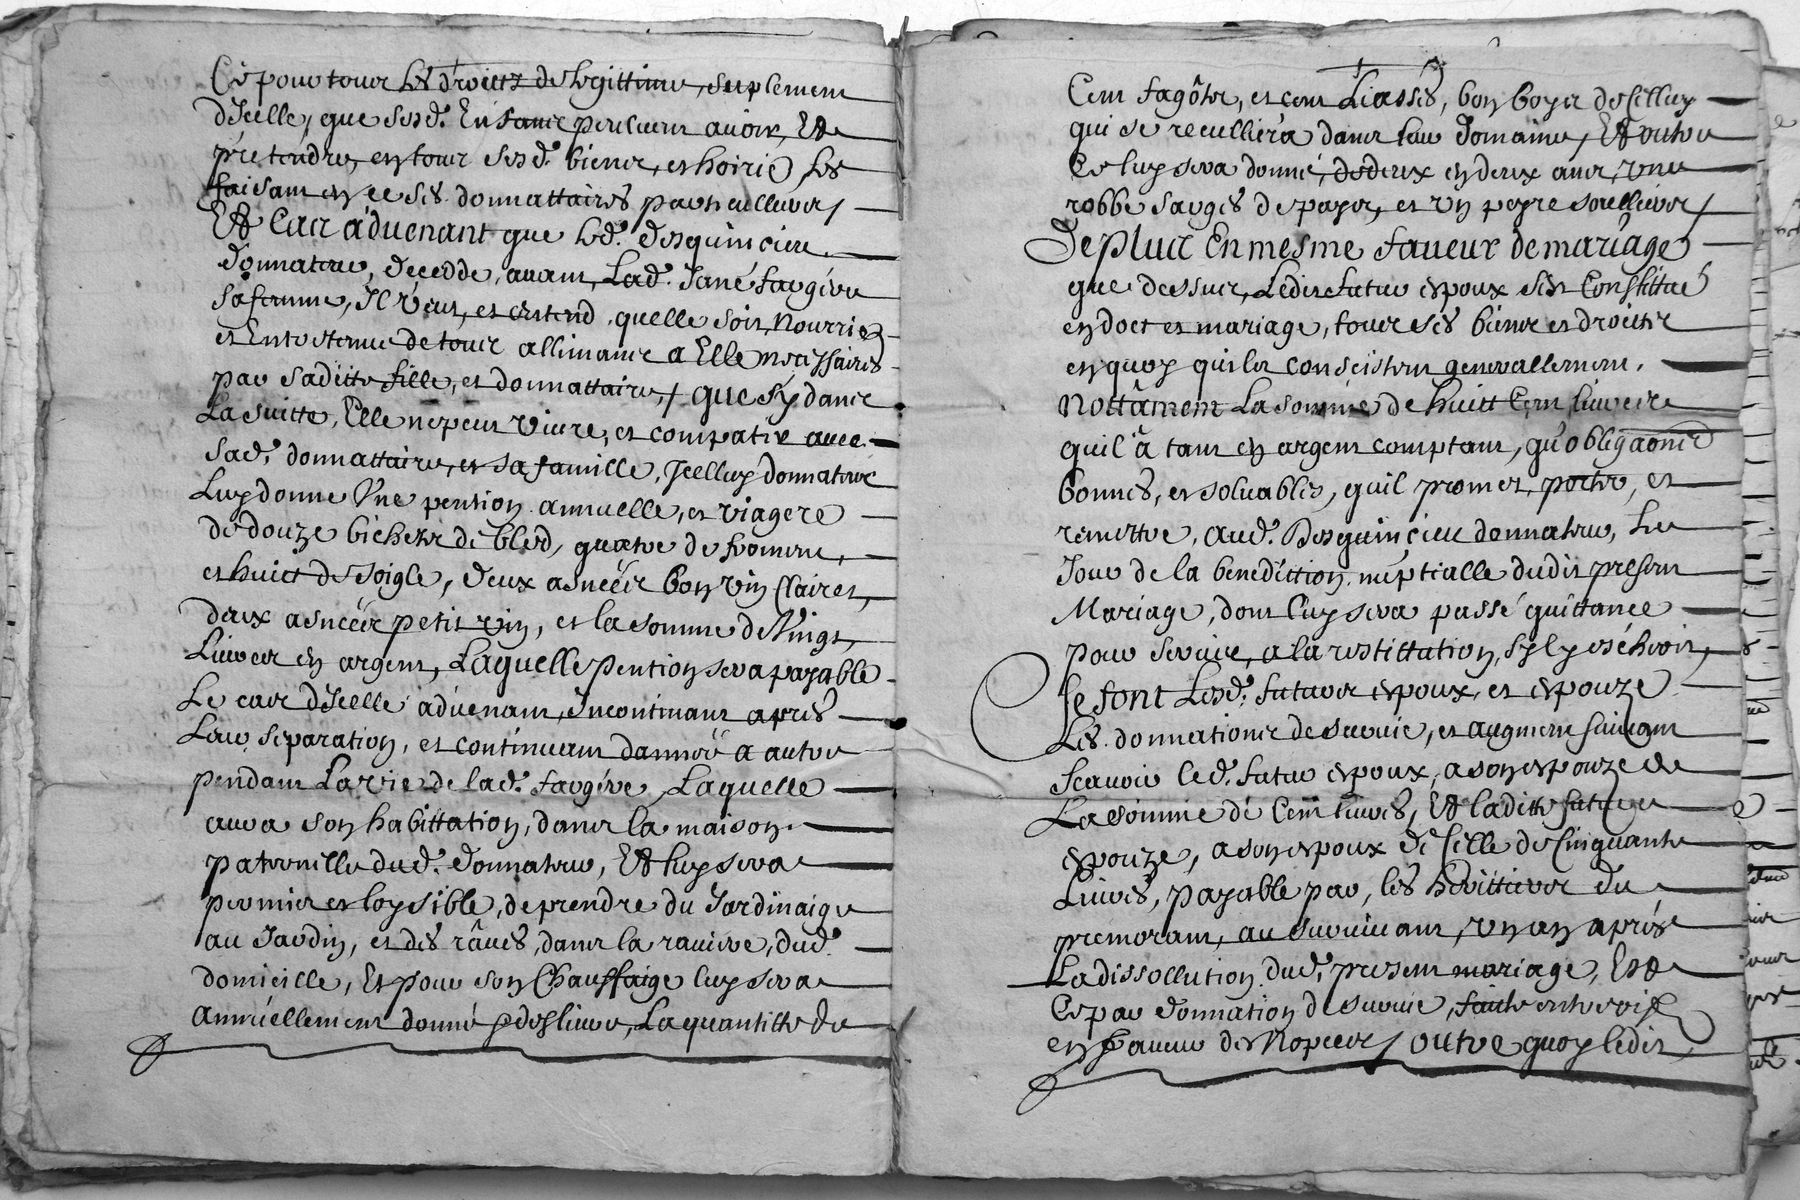 Ce pour tous les droictz de legittime, suplement
d'Icelle, que sesd. Enfans peuluent avoir, Et
prétendre, en tous sesd. biens, et hoirie, les
faisant en ce ses donnattaires particulliers /
Et Cas advenant que led. desquinsieu
donnateur, decedde, avant, Lad. Jane faugère
sa femme, Il Veut, et entend, quelle soit, Nourrie
et Entretenue de tous allimans a Elle necessaires
par saditte fille, et donnattaire, / que sy dans
La suitte, Elle ne peut Vivre, et compatir avec
sad. donnattaire, et sa famille, Icelluy donnateur
Luy donne Vne pention annuelle, et viagere
de douze bichetz de bled, quatre de froment,
et huict de soigle, deux asnées bon vin Clairet,
deux asnées petit vin, et la somme de Vingt,
Livres en argent, Laquelle pention sera payable
Le cas d'Icelle advenant, Incontinant apres
Leur separation, et continuant d'année a autre
pendant La vie de lad. faugère, Laquelle
aura son habittation, dans la maison
paternelle dud. donnateur, Et luy sera
permis et loysible, de prendre du Jardinaige
au Jardin, et des râves, dans la raviere, dud.
domicille, Et pour son Chauffaige luy sera
Annuellement donné, La quantitte de
Cent fagôtz, et cent Liasses, bon boyes de Celluy
qui se recullièra dans leur domaine, Et outre
Ce luy sera donné, de deux en deux ans, vne
robbe sarges de pays, et vn peyre soulliers /
De plus En mesme faveur de mariage
que dessus, Ledit futur espoux s'est Constittué
en doct et mariage, tous ses biens et droictz
en quoy quils consistent generallement.
Nottament La somme de huict Cent livres
quil â tant en argent comptant, qu'obligaons
bonnes, et soluables, quil promet, porter, et
remettre, aud. Desquinsieu donnateur, Le
Jour de la benediction nuptialle dudit present
Mariage, dont luy sera passé quittance
pour servir, a la restittation, sy ly eschoit,
Se font Lesd. futurs espoux, et espouze
Les donnations de survie, et augment suivant
Scavoir led. futur espoux, a son espouze de
La somme de Cent livres, Et laditte future
espouze, a son espoux de Celle de Cinquante
Livres, payable par, les herittiers du
premorant, au survivant, vn an après
La dissollution dud. present mariage, Et
Ce par donnation de survie, faicte entrevifs
en faveur des Nopces / outre quoy ledit